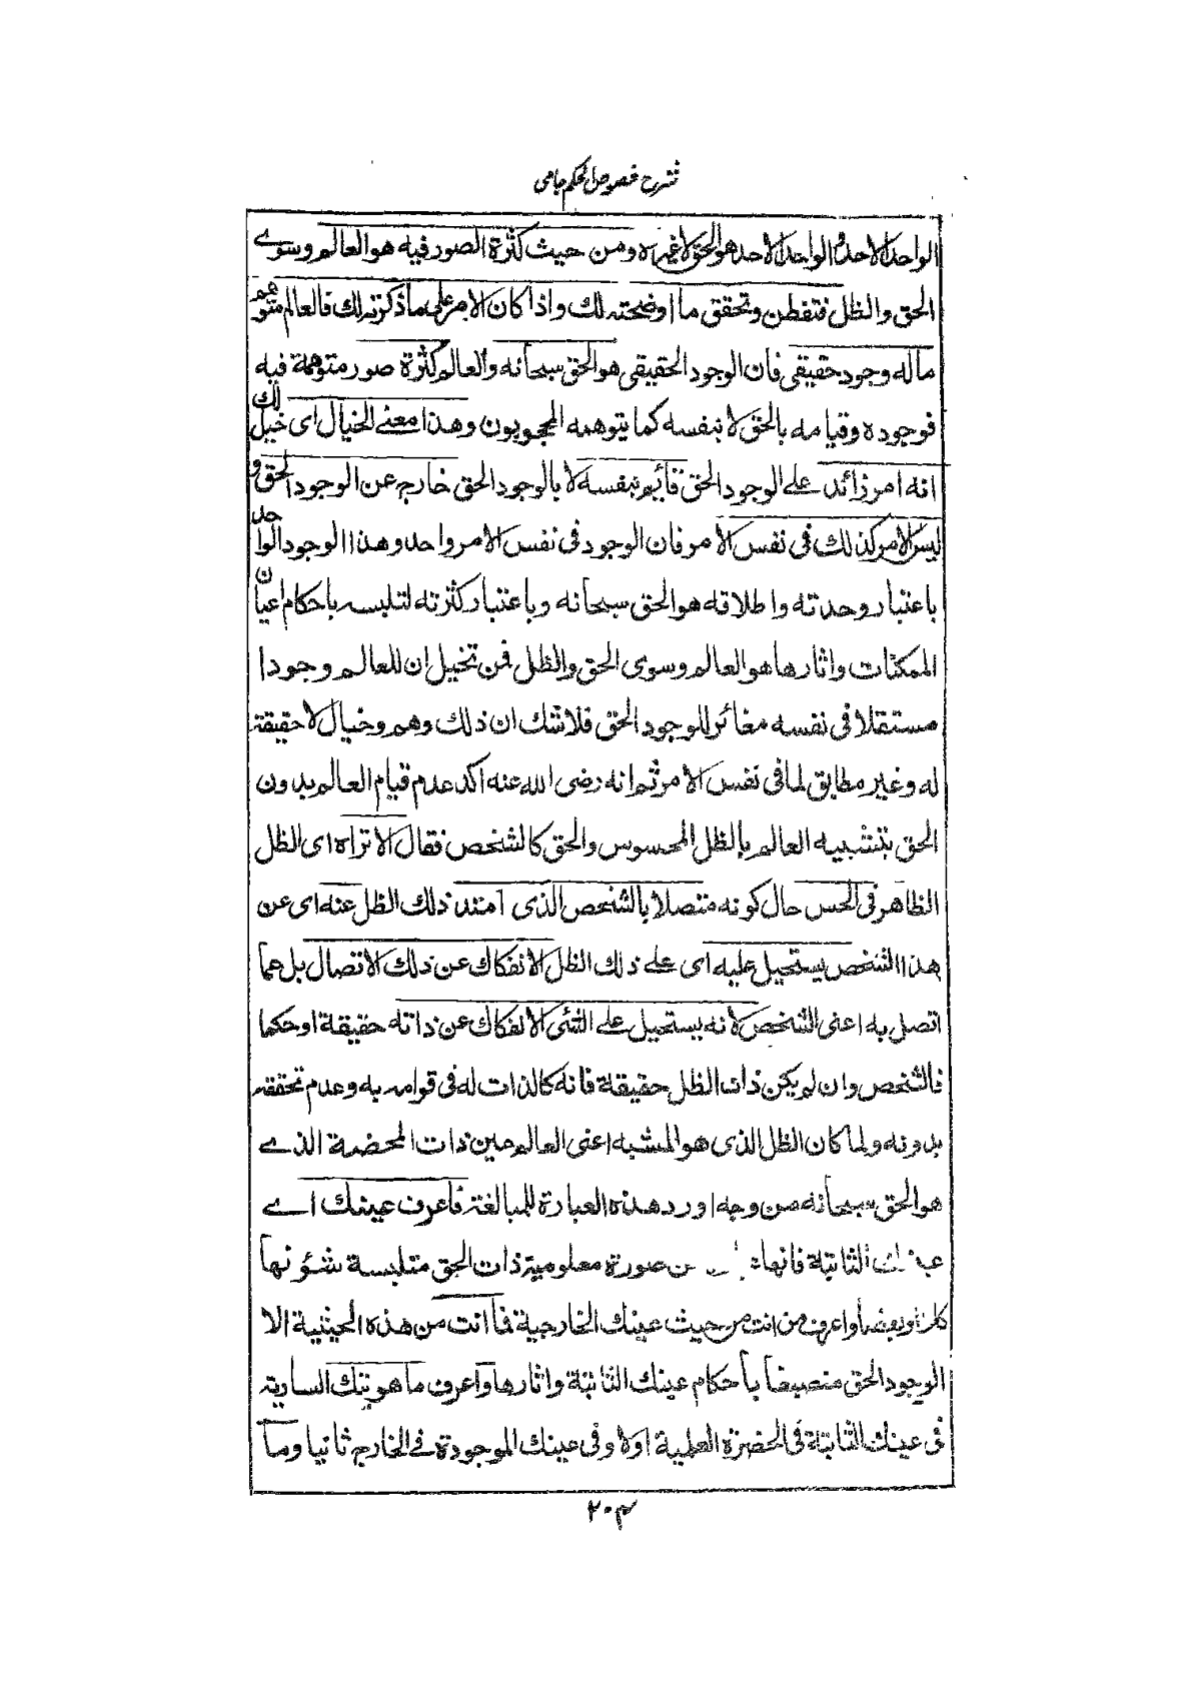 شرح فصوص الحكم جامی
الواحد الاحد والواحد الاحد هو الحق لا غيره ومن حيث كثرة الصور فيه هو العالم وسوے
الحق والظل فتفطن وتحقق ما اوضحته لك واذا كان الامر على ما ذكرته لك فالعالم متوهم
ما له وجود حقيقى فان الوجود الحقيقى هو الحق سبحانه والعالم كثرة صور متوهمة فيه
فوجوده وقيامه بالحق لا بنفسه كما يتوهمه المحجوبون وهذا معنى الخيال اى خيل لك
انه امر زائد على الوجود الحق قائم بنفسه لا بالوجود الحق خارج عن الوجود الحق و
ليس الامر كذلك فى نفس الامر فان الوجود فى نفس الامر واحد وهذا الوجود الواحد
باعتبار وحدته واطلاقه هو الحق سبحانه وباعتبار كثرته لتلبسه باحكام اعيان
الممكنات واثارها هو العالم وسوى الحق والظل فمن تخيل ان للعالم وجودا
مستقلا فى نفسه مغائر للوجود الحق فلا شك ان ذلك وهم وخيال لا حقيقة
له وغير مطابق لما فى نفس الامر ثم انه رضى الله عنه اكد عدم قيام العالم بدون
الحق بتشبيه العالم بالظل المحسوس والحق كالشخص فقال الا تراه اى الظل
الظاهر فى الحس حال كونه متصلا بالشخص الذى امتد ذلك الظل عنه اى عن
هذا الشخص يستحيل عليه اى على ذلك الظل الانفكاك عن ذلك الاتصال بل عما
اتصل به اعنى الشخص لانه يستحيل على الشئى الانفكاك عن ذاته حقيقة او حكما
فالشخص وان لم يكن ذات الظل حقيقة فانه كالذات له فى قوامه به وعدم تحققه
بدونه ولما كان الظل الذى هو المشبه اعنى العالم عين ذات المحضة الذے
هو الحق سبحانه من وجه اورد هذه العبارة للمبالغة فاعرف عينك اے
عينك الثابتة فانها عن صورة معلومية ذات الحق متلبسة بشؤنها
كلها او بعضها واعرف من انت من حيث عينك الخارجية فما انت من هذه الحيثية الا
الوجود الحق منصبغا باحكام عينك الثابتة واثارها واعرف ما هويتك السارية
فى عينك الثابتة فى الحضرة العلمية اولا وفى عينك الموجودة فے الخارج ثانيا وما
۲۰۳